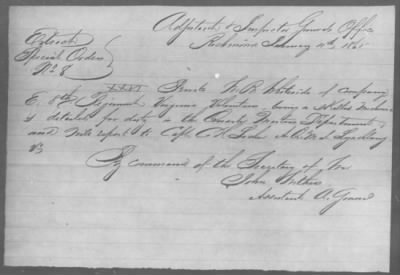 Adjutant & Inspector General's Office
Richmond January 11th 1865
Extract
Special Orders
No 8
Private W. R. of Company
E. 8th Regiment Virginia Volunteers, being a skilled Mechanic
is detailed for duty in the Quarter Masters Department
and will report to Capt. A.Q.M. at Lynchburg
Va
By command of the Secretary of War
John Withers
Assistant A. General